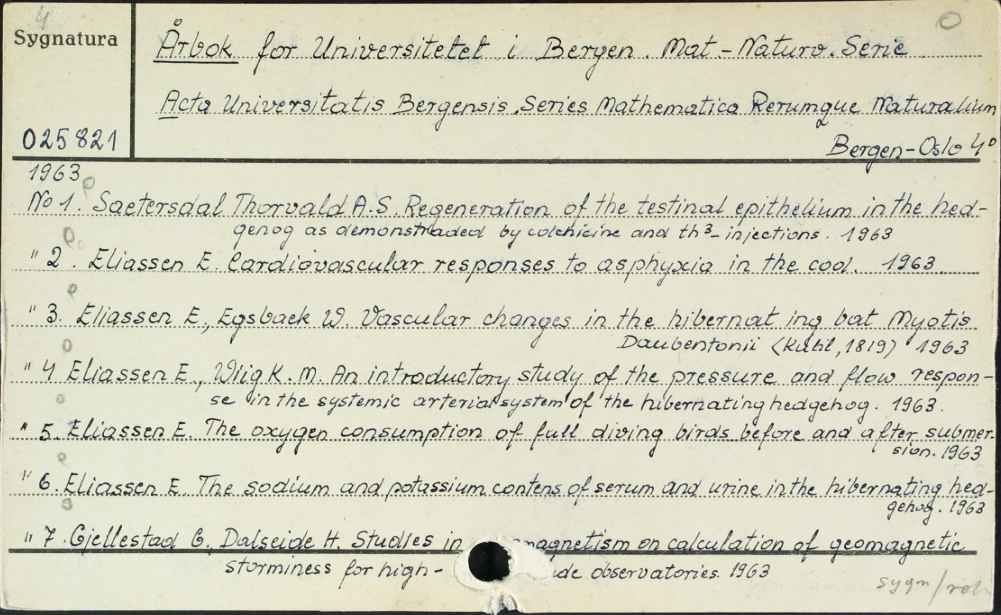 4
Sygnatura
025821
Årbok for Universitetet i Bergen. Mat.-Naturv. Serie
Acta Universitatis Bergensis. Series Mathematica Rerumque Naturalium
Bergen-Oslo 4°
1963
No 1. Saetersdal Thorvald A.S. Regeneration of the testinal epithelium in the hed-
genog as demonstraded by colchicine and th³-injections. 1963
" 2. Eliassen E. Cardiovascular responses to asphyxia in the cod. 1963
" 3. Eliassen E., Egsbaek W. Vascular changes in the hibernat ing bat Myotis
Daubentonii (Kuhl, 1819) 1963
" 4 Eliassen E., Wiig K. M. An introductory study of the pressure and flow respon-
se in the systemic arterial system of the hibernating hedgehog. 1963.
" 5. Eliassen E. The oxygen consumption of full diving birds before and after submer-
sion. 1963
" 6. Eliassen E. The sodium and potassium contens of serum and urine in the hibernating hed-
gehog. 1963
" 7. Gjellestad G., Dalseide H. Studies in magnetism on calculation of geomagnetic
storminess for high- ude observatories. 1963
sygn/